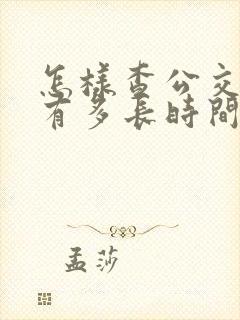 怎樣查公交
有多長時間
孟莎